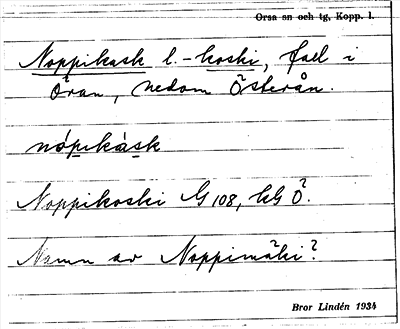 Orsa sn och tg, Kopp. l.
Noppikask l. -koski, fall i
Öran, nedom Österån.
nópikàsk
Noppikoski G 108, kG Ö?
Namn av Noppimäki?
Bror Lindén 1934